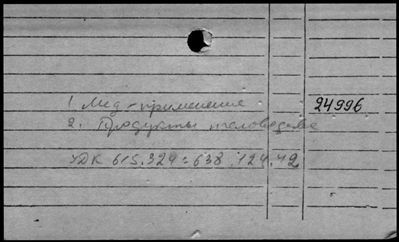 1. Мед - применение
24996
2. Продукты пчеловодства
УДК 615.324:638.124.42